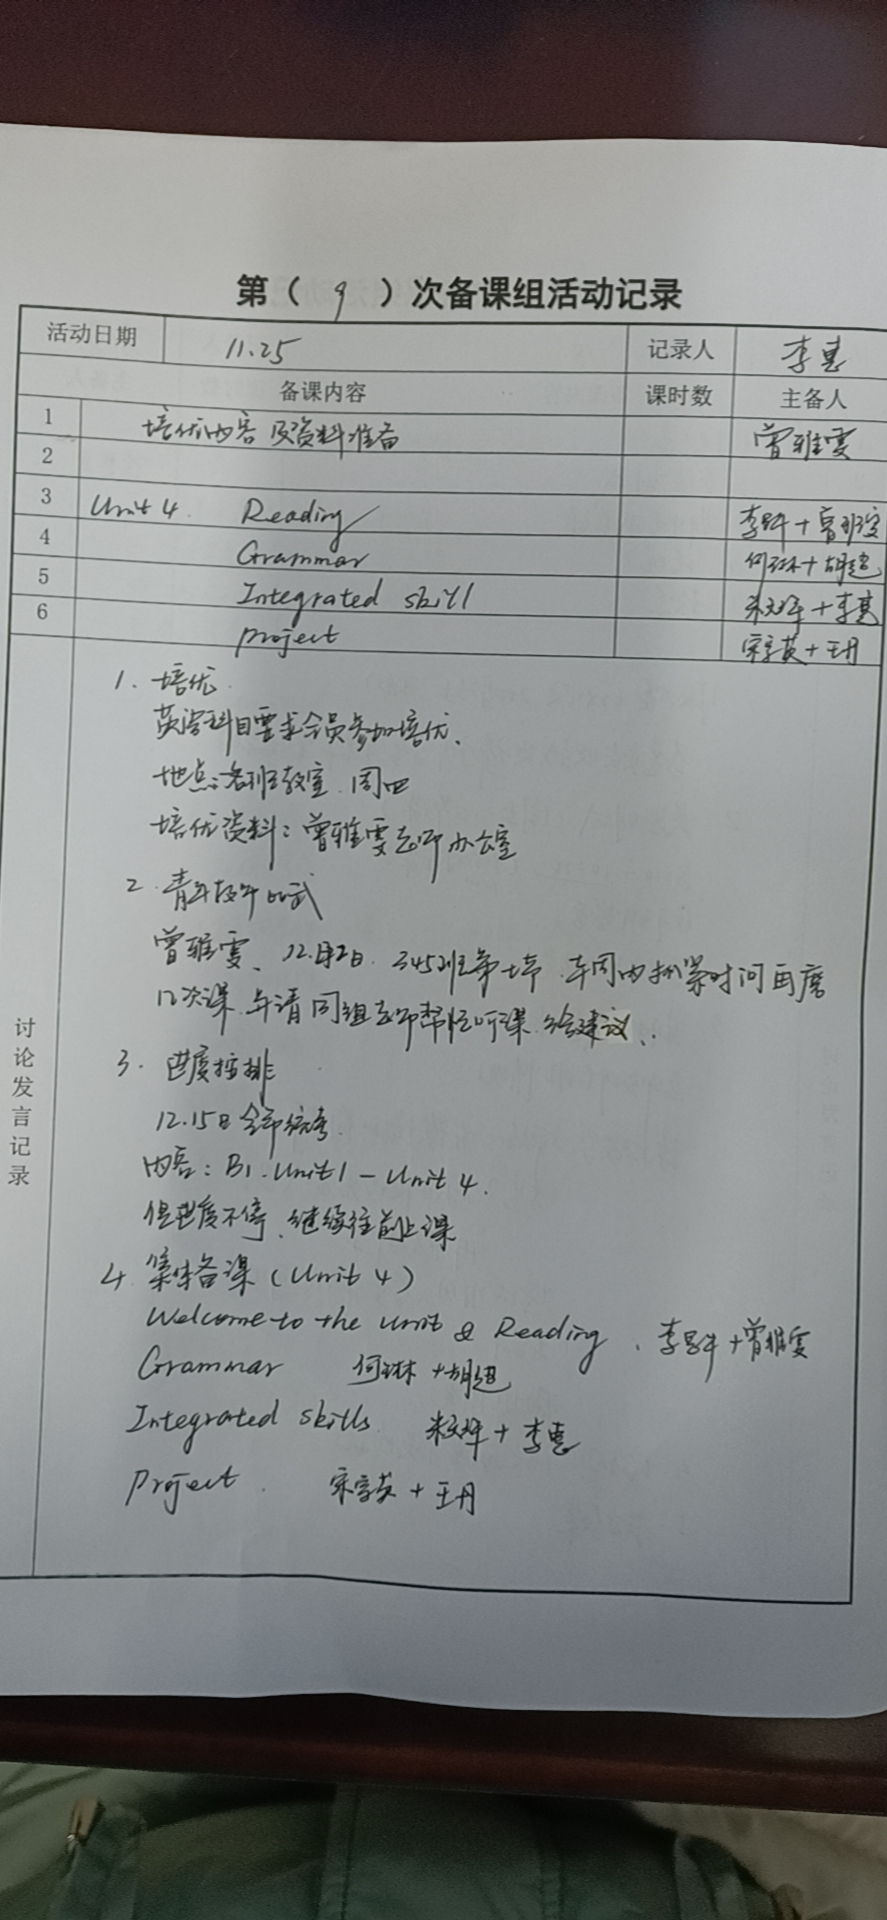 第（ 9 ）次备课组活动记录
活动日期 11.25 记录人 李惠
备课内容 课时数 主备人
1 培优内容及资料准备 曾雅雯
2
3 Unit 4 Reading 李 + 曾雅雯
4 Grammar 何琳+胡超
5 Integrated skill + 李惠
6 project 宋 英 + 王丹
讨论发言记录
1. 培优
英语科目要求全员参加培优、
地点：各班教室 周四
培优资料：曾雅雯老师办公室
2. 青年教师比武
曾雅雯、12月2日 345班第七节 本周内抓紧时间再磨
几次课 并请同组老师帮忙听课 给建议、
3. 进度按排
12.15日全部统考
内容：B1.Unit1 - Unit 4.
但进度不停、继续往前上课
4 集体备课（Unit 4）
Welcome to the unit & Reading、李 + 曾雅雯
Grammar 何琳 + 胡超
Integrated skills + 李惠
Project. 宋 英 + 王丹